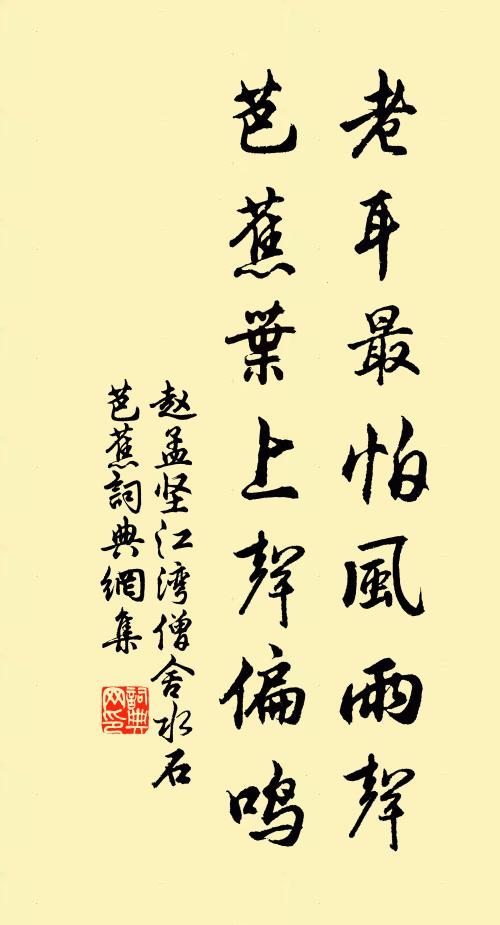 老耳最怕風雨聲
芭蕉葉上聲偏鸣
赵孟坚江湾僧舍水石
芭蕉詞典網集
詞典
网印